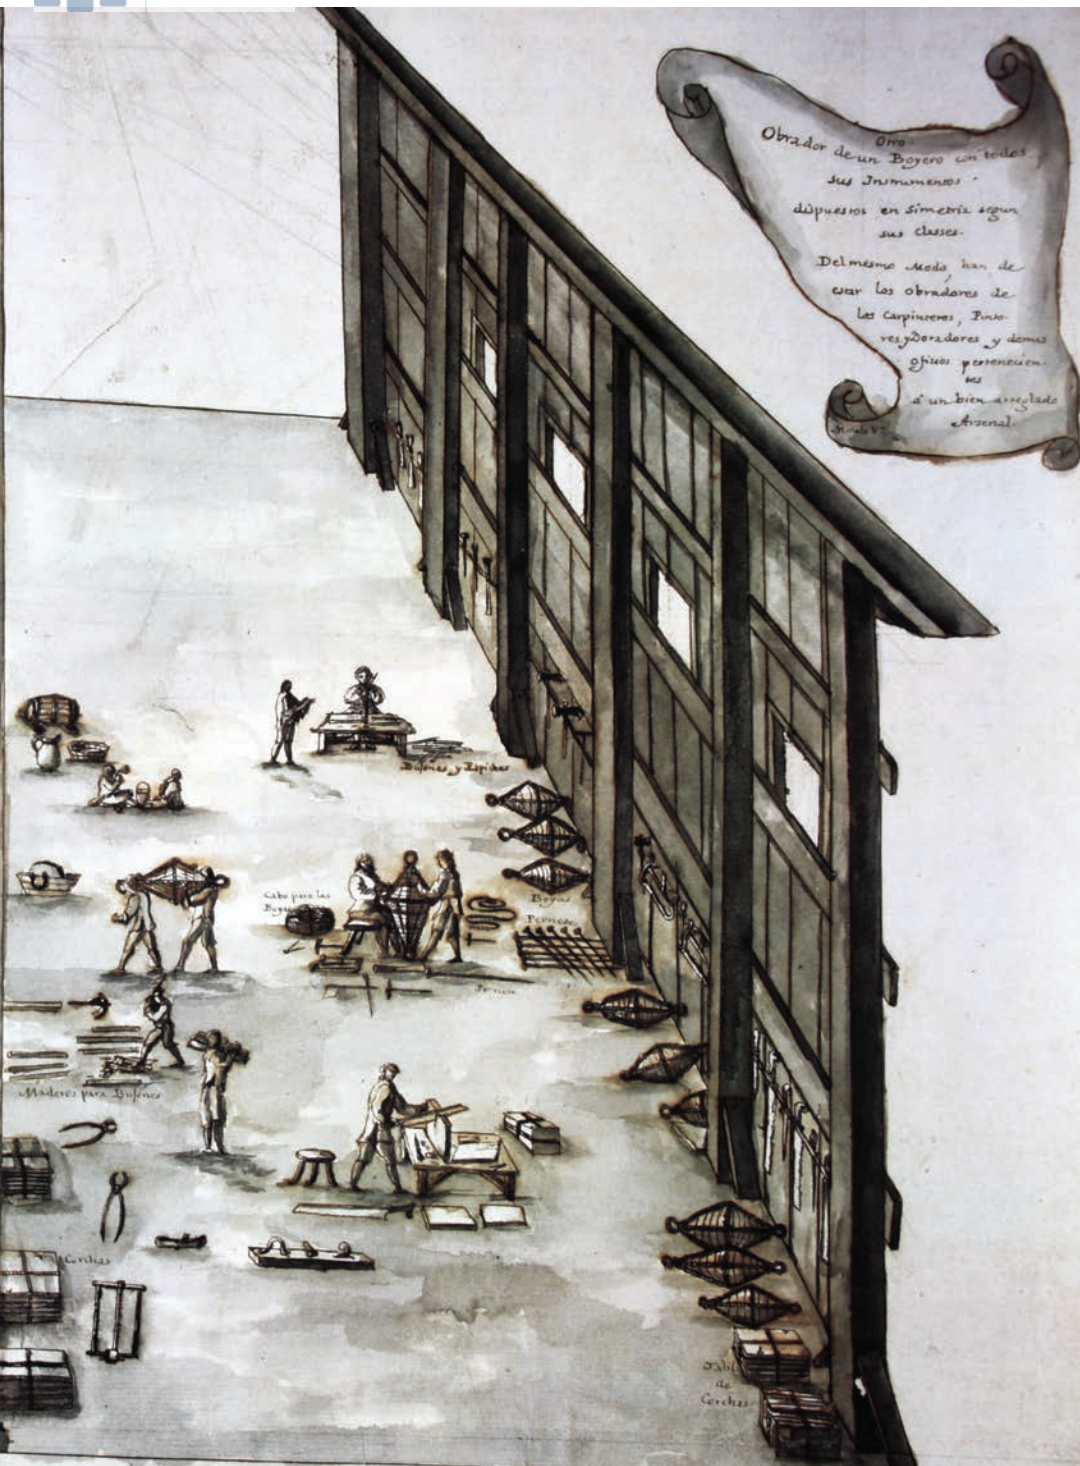 Otro
Obrador de un Boyero con todos
sus Instrumentos
dispuestos en simetria segun
sus classes.
Del mesmo Modo, han de
estar los obradores de
los Carpinteros, Pinto-
res y Doradores y demas
oficios pertenecien-
tes
á un bien arreglado
Arsenal.
y Espiches
Cabo para las
Boyas
Pernos
Maderos para Bujones
Corchas
de
Corchas